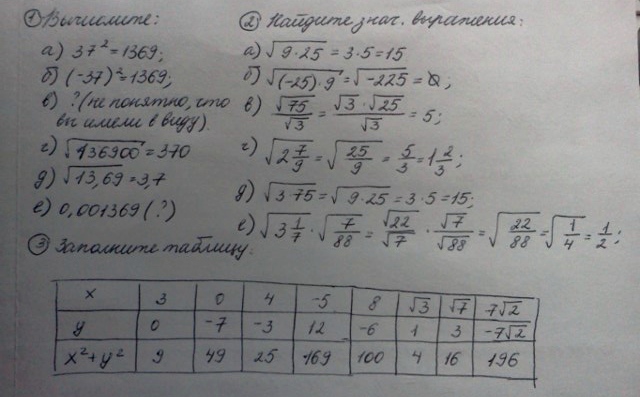 ① Вычислите:
а) 37² = 1369;
б) (-37)² = 1369;
в) ? (не понятно, что
вы имели в виду).
г) √136900 = 370
д) √13,69 = 3,7
е) 0,001369 (?)
② Найдите знач. выражения:
а) √9·25 = 3·5 = 15
б) √(-25)·9 = √-225 = Ø;
в) √75/√3 = √3·√25/√3 = 5;
г) √2 7/9 = √25/9 = 5/3 = 1 2/3;
д) √3·75 = √9·25 = 3·5 = 15;
е) √3 1/7 · √7/88 = √22/√7 · √7/√88 = √22/88 = √1/4 = 1/2;
③ Заполните таблицу:
x 3 0 4 -5 8 √3 √7 7√2
y 0 -7 -3 12 -6 1 3 -7√2
x²+y² 9 49 25 169 100 4 16 196